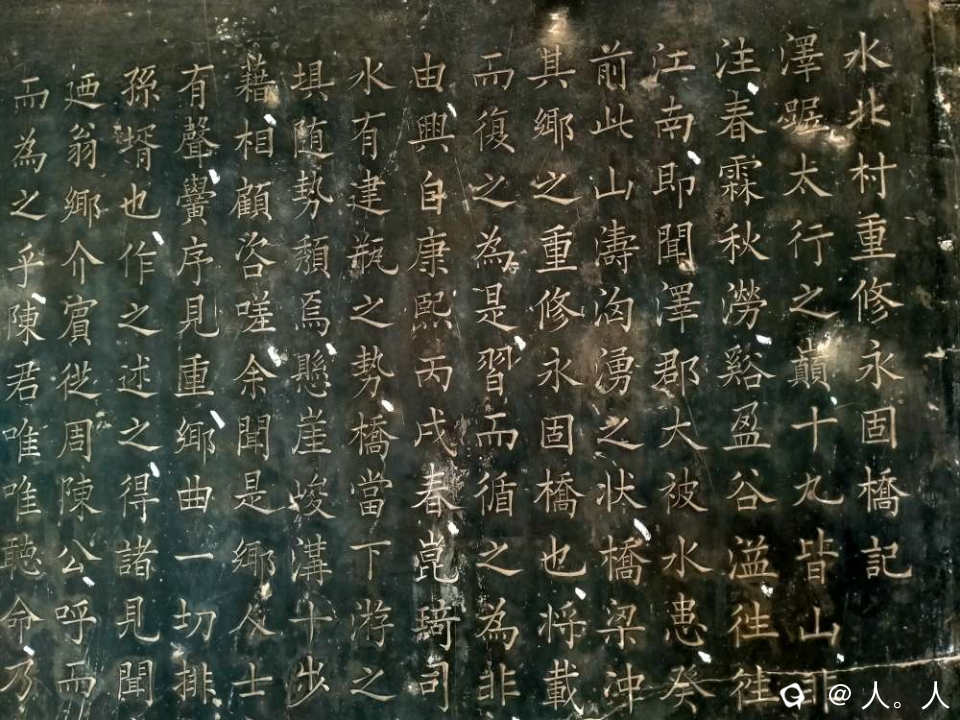 水北村重修永固橋記
澤踞太行之巔十九皆山非
注春霖秋澇谿盈谷溢往往
江南即聞澤郡大被水患癸
前此山濤洶湧之状橋梁沖
其鄉之重修永固橋也将載
而復之為是習而循之為非
由興自康熙丙戌春崑琦司
水有建瓶之勢橋當下游之
埧随勢頹焉懸崖峻溝十步
藉相顧咨嗟余聞是鄉人士
有聲黌序見重鄉曲一切排
孫壻也作之述之得諸見聞
廼翁鄉介賓從周陳公呼而
而為之乎陳君唯唯聽命乃
@人。人